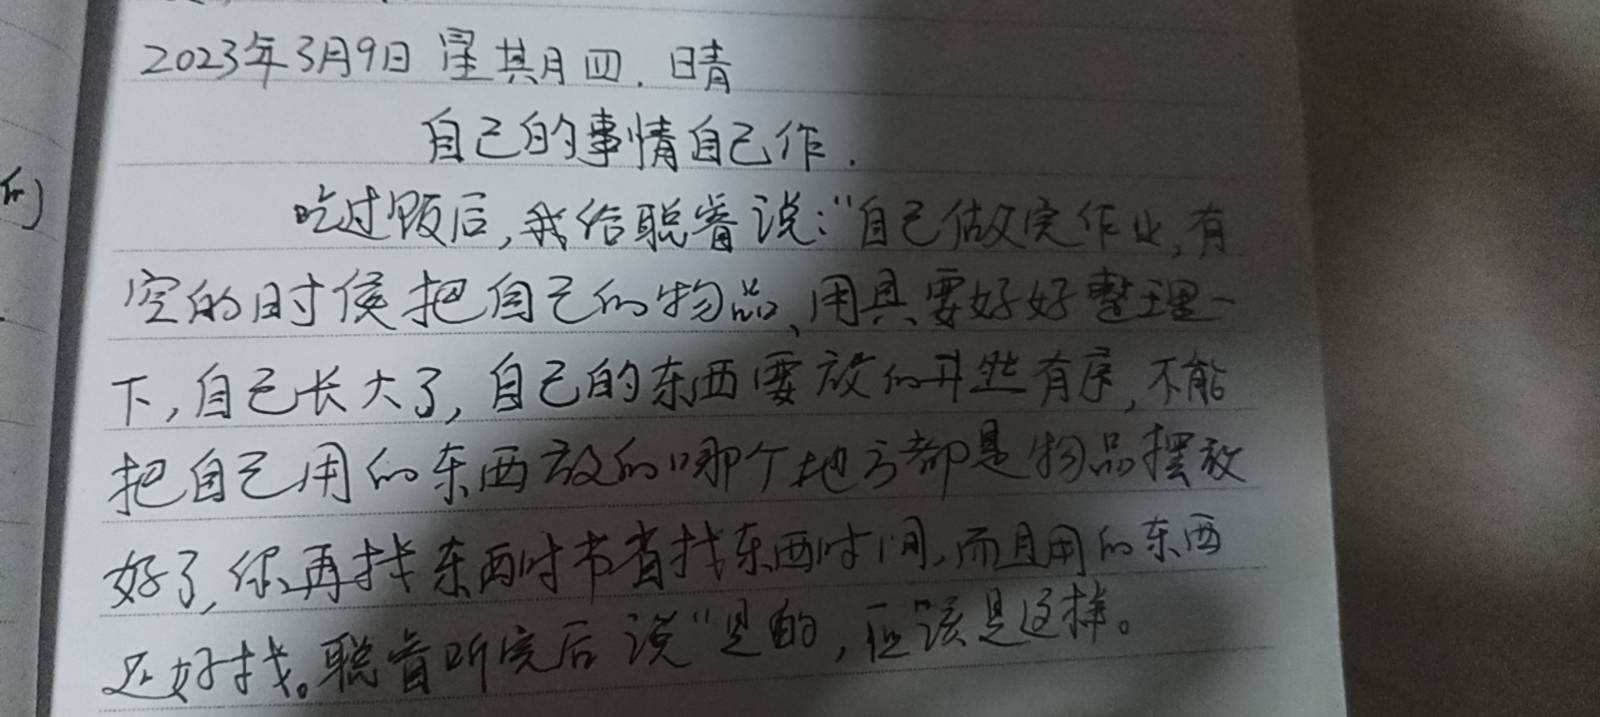 2023年3月9日 星期四. 晴
自己的事情自己作.
吃过饭后,我给聪睿说:"自己做完作业,有
空的时候把自己的物品、用具要好好整理一
下,自己长大了,自己的东西要放的井然有序,不能
把自己用的东西放的哪个地方都是物品摆放
好了,你再找东西时节省找东西时间,而且用的东西
还好找。聪睿听完后说"是的,应该是这样。